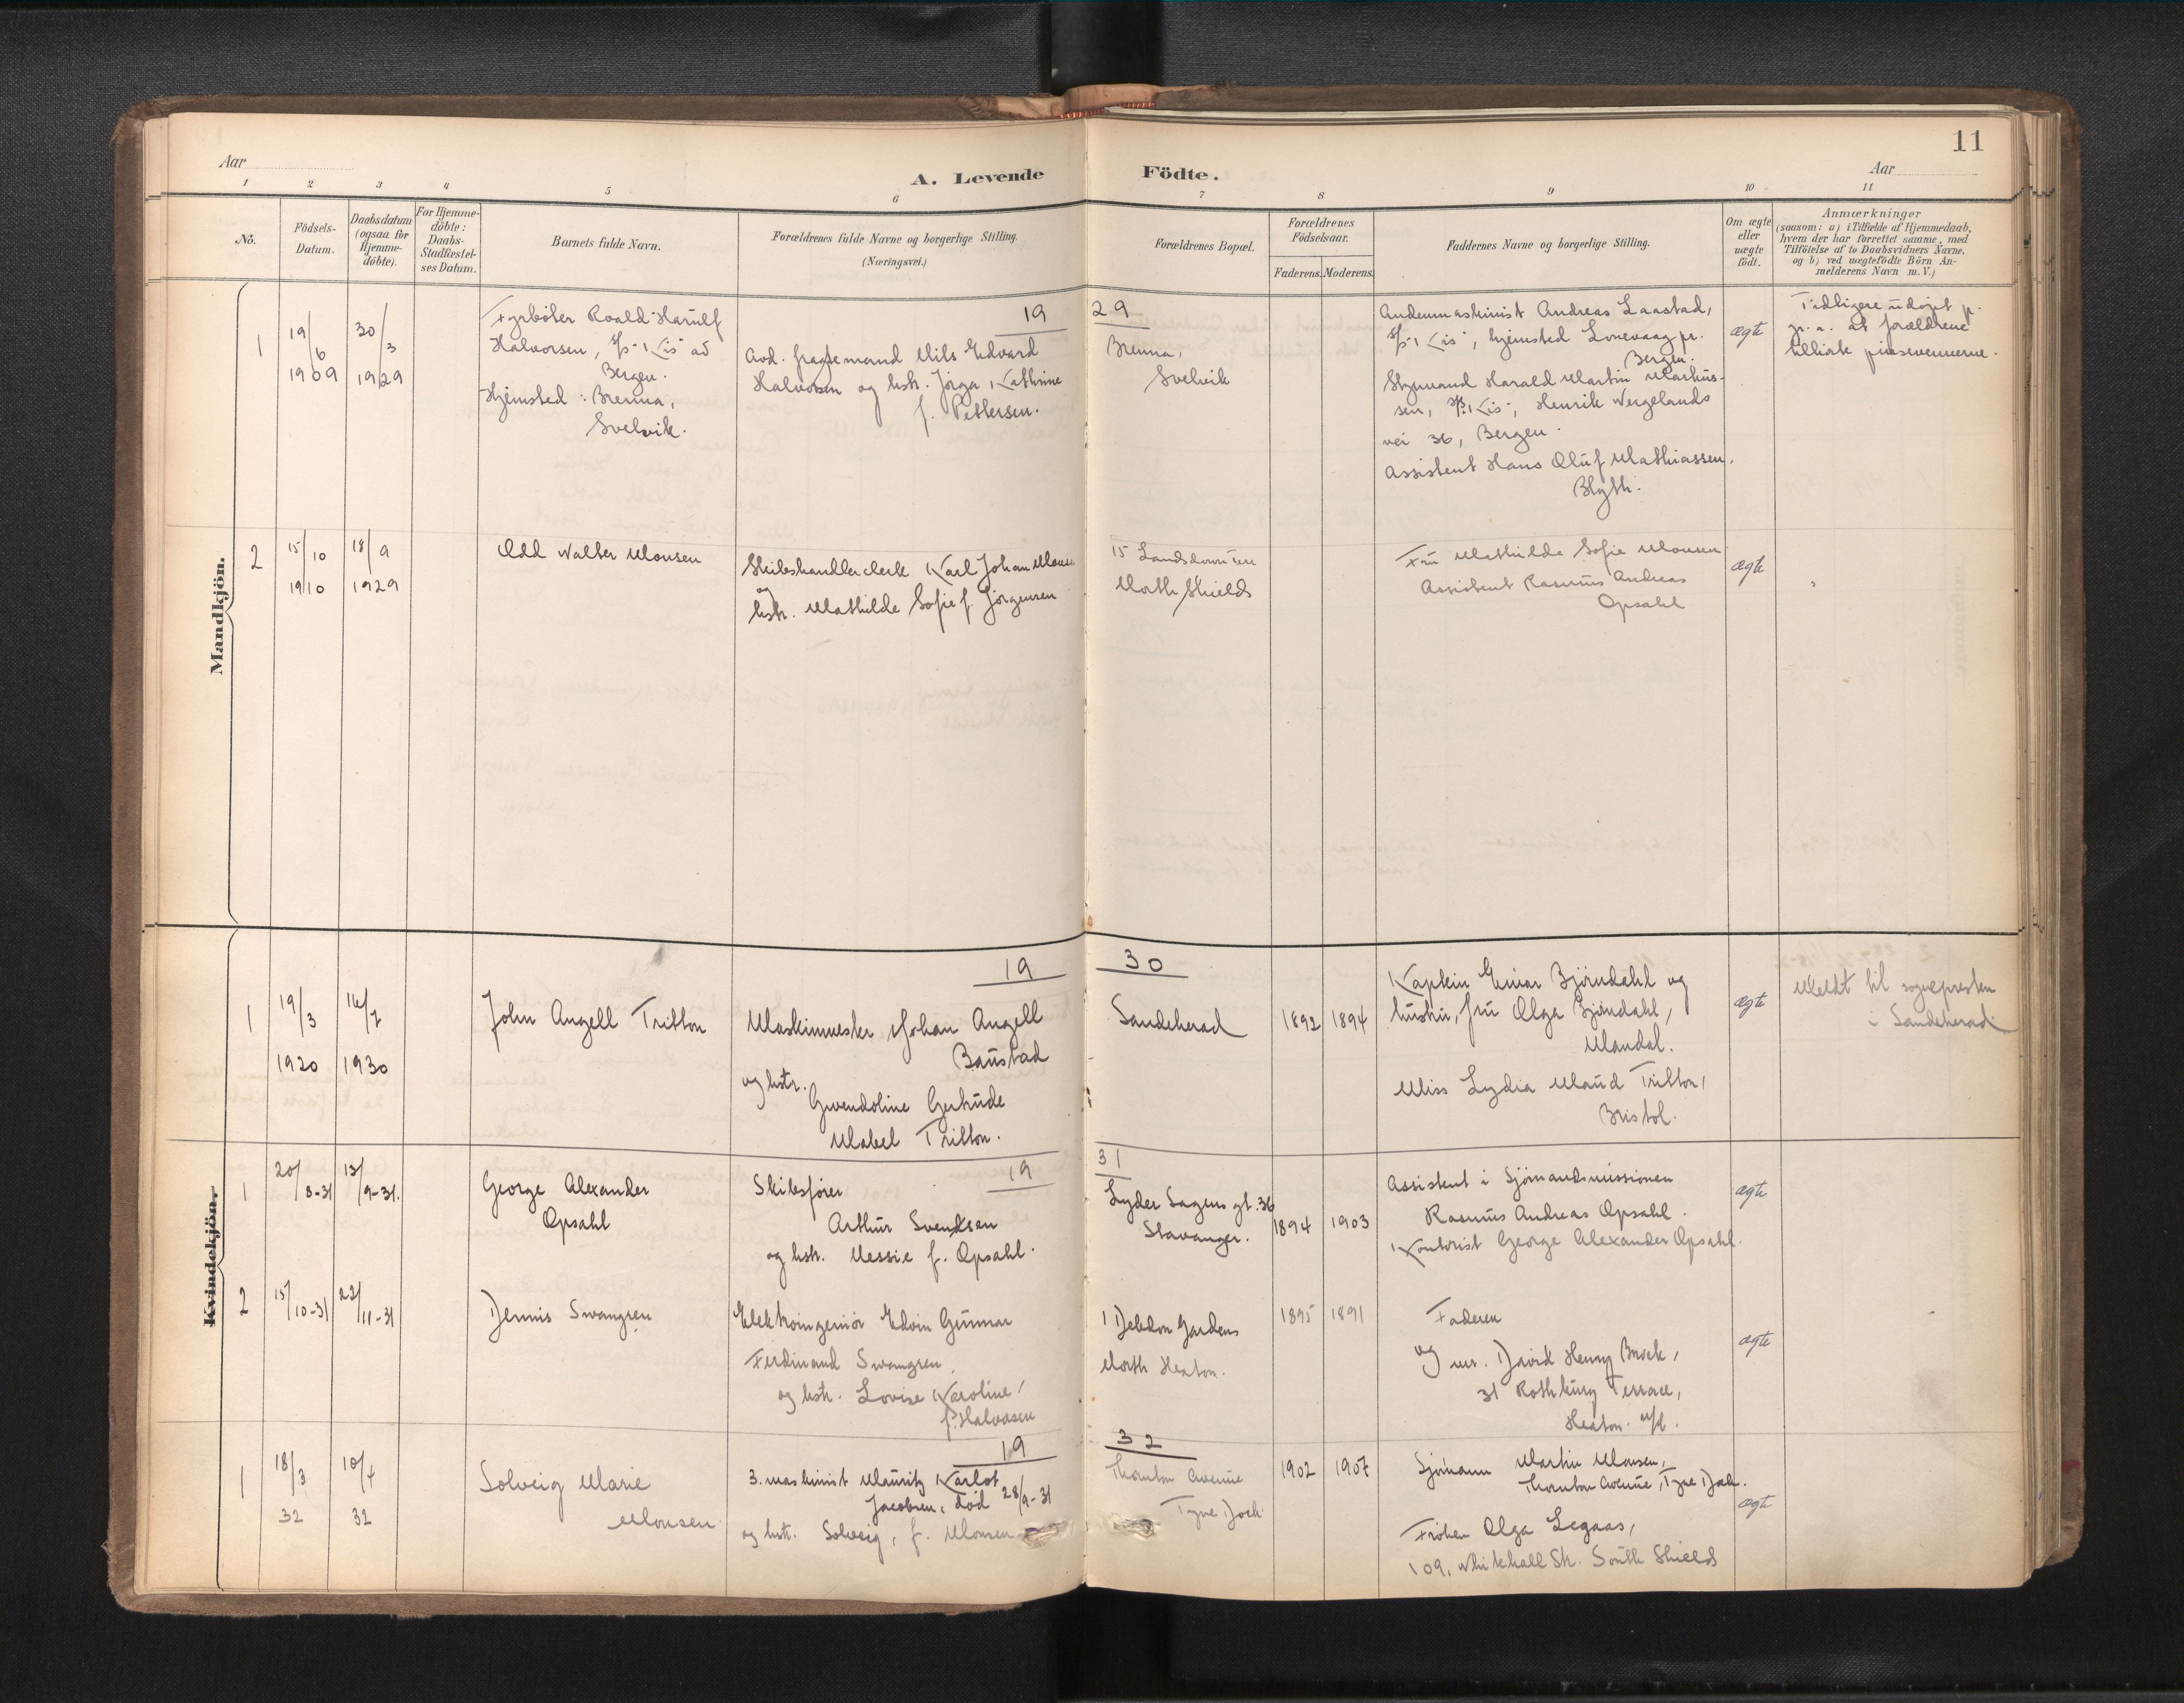 11
Aar
A. Levende Födte.
Aar
1 2 3 4 5 6 7 8 9 10 11
No.
Födsels-
Datum.
Daabsdatum
(ogsaa for
Hjemme-
döbte).
For Hjemme-
döbte:
Daabs-
Stadfæstel-
ses Datum.
Barnets fulde Navn.
Forældrenes fulde Navne og borgerlige Stilling.
(Næringsvei.)
Forældrenes Bopæl.
Forældrenes
Födselsaar.
Faderens. Moderens.
Faddernes Navne og borgerlige Stilling.
Om ægte
eller
uægte
födt.
Anmærkninger
(saasom: a) i Tilfælde af Hjemmedaab,
hvem der har forrettet samme, med
Tilföielse af to Daabsvidners Navne.
og b) ved uægtefödte Börn An-
melderens Navn m. V.)
Mandkjön.
19 29
1
19/6
1909
30/3
1929
Fyrböter Roald Harulf
Halvorsen, s/s "Kis" av
Bergen.
Hjemsted: Brenna,
Svelvik.
Avd. fragtemand Nils Edvard
Halvorsen og hstr. Jörga Kathrine
f. Pettersen.
Brenna,
Svelvik
Andenmaskinist Andreas Laastad,
s/s "Kis", hjemsted Lonevaag pr.
Bergen.
Styrmand Harald Martin Markus-
sen, s/s "Kis", Henrik Wergelands
vei 36, Bergen.
Assistent Hans Oluf Mathiassen,
Blyth.
ægte
Tidligere udöpt p.
gr. a. at forældrene
tilhörte pinsevennerne.
2
15/10
1910
18/9
1929
Odd Walter Monsen
Skibshandlerclerk Karl Johan Monsen
og
hstr. Mathilde Sofie f. Jörgensen
15 Landsdown
North Shields
Fru Mathilde Sofie Monsen
Assistent Rasmus Andreas
Opsahl
ægte
Kvindekjön.
19 30
1
19/3
1920
16/7
1930
John Angell Tritton
Maskinmester Johan Angell
Baustad
og hstr.
Gwendoline Gertrude
Mabel Tritton.
Sandeherad
1892 1894
Kaptein Einar Björndahl og
hustru, fru Olga Björndahl,
Mandal.
Miss Lydia Maud Tritton,
Bristol.
ægte
Meldt til sognepresten
i Sandeherad
19 31
1
20/8-31
13/9-31.
George Alexander
Opsahl
Skibsförer
Arthur Svendsen
og hstr. Messie f. Opsahl.
Lyder Sagens gt. 36
Stavanger.
1894 1903
Assistent i Sjömandsmissionen
Rasmus Andreas Opsahl.
Kontorist George Alexander Opsahl.
ægte
2
15/10-31
22/11-31
Dennis Swangren
Elektroingeniör Edvin Gunnar
Ferdinand Swangren,
og hstr. Lovise Karoline,
f. Halvorsen
1 Debdon Gardens
North Heaton.
1895 1891
Faderen
og mr. David Henry Brock,
31 Rothbury Terrace,
Heaton. n/c.
ægte
19 32
1
18/3
32
10/4
32
Solveig Marie
Monsen
3. maskinist Mauritz Karlot
Jacobsen, död 28/9-31
og hstr. Solveig, f. Monsen
Thornton Avenue
Tyne Dock
1902 1907
Sjömann Martin Monsen,
Thornton Avenue, Tyne Dock.
Fröken Olga Legaas,
109, Whitehall Str. South Shields
ægte